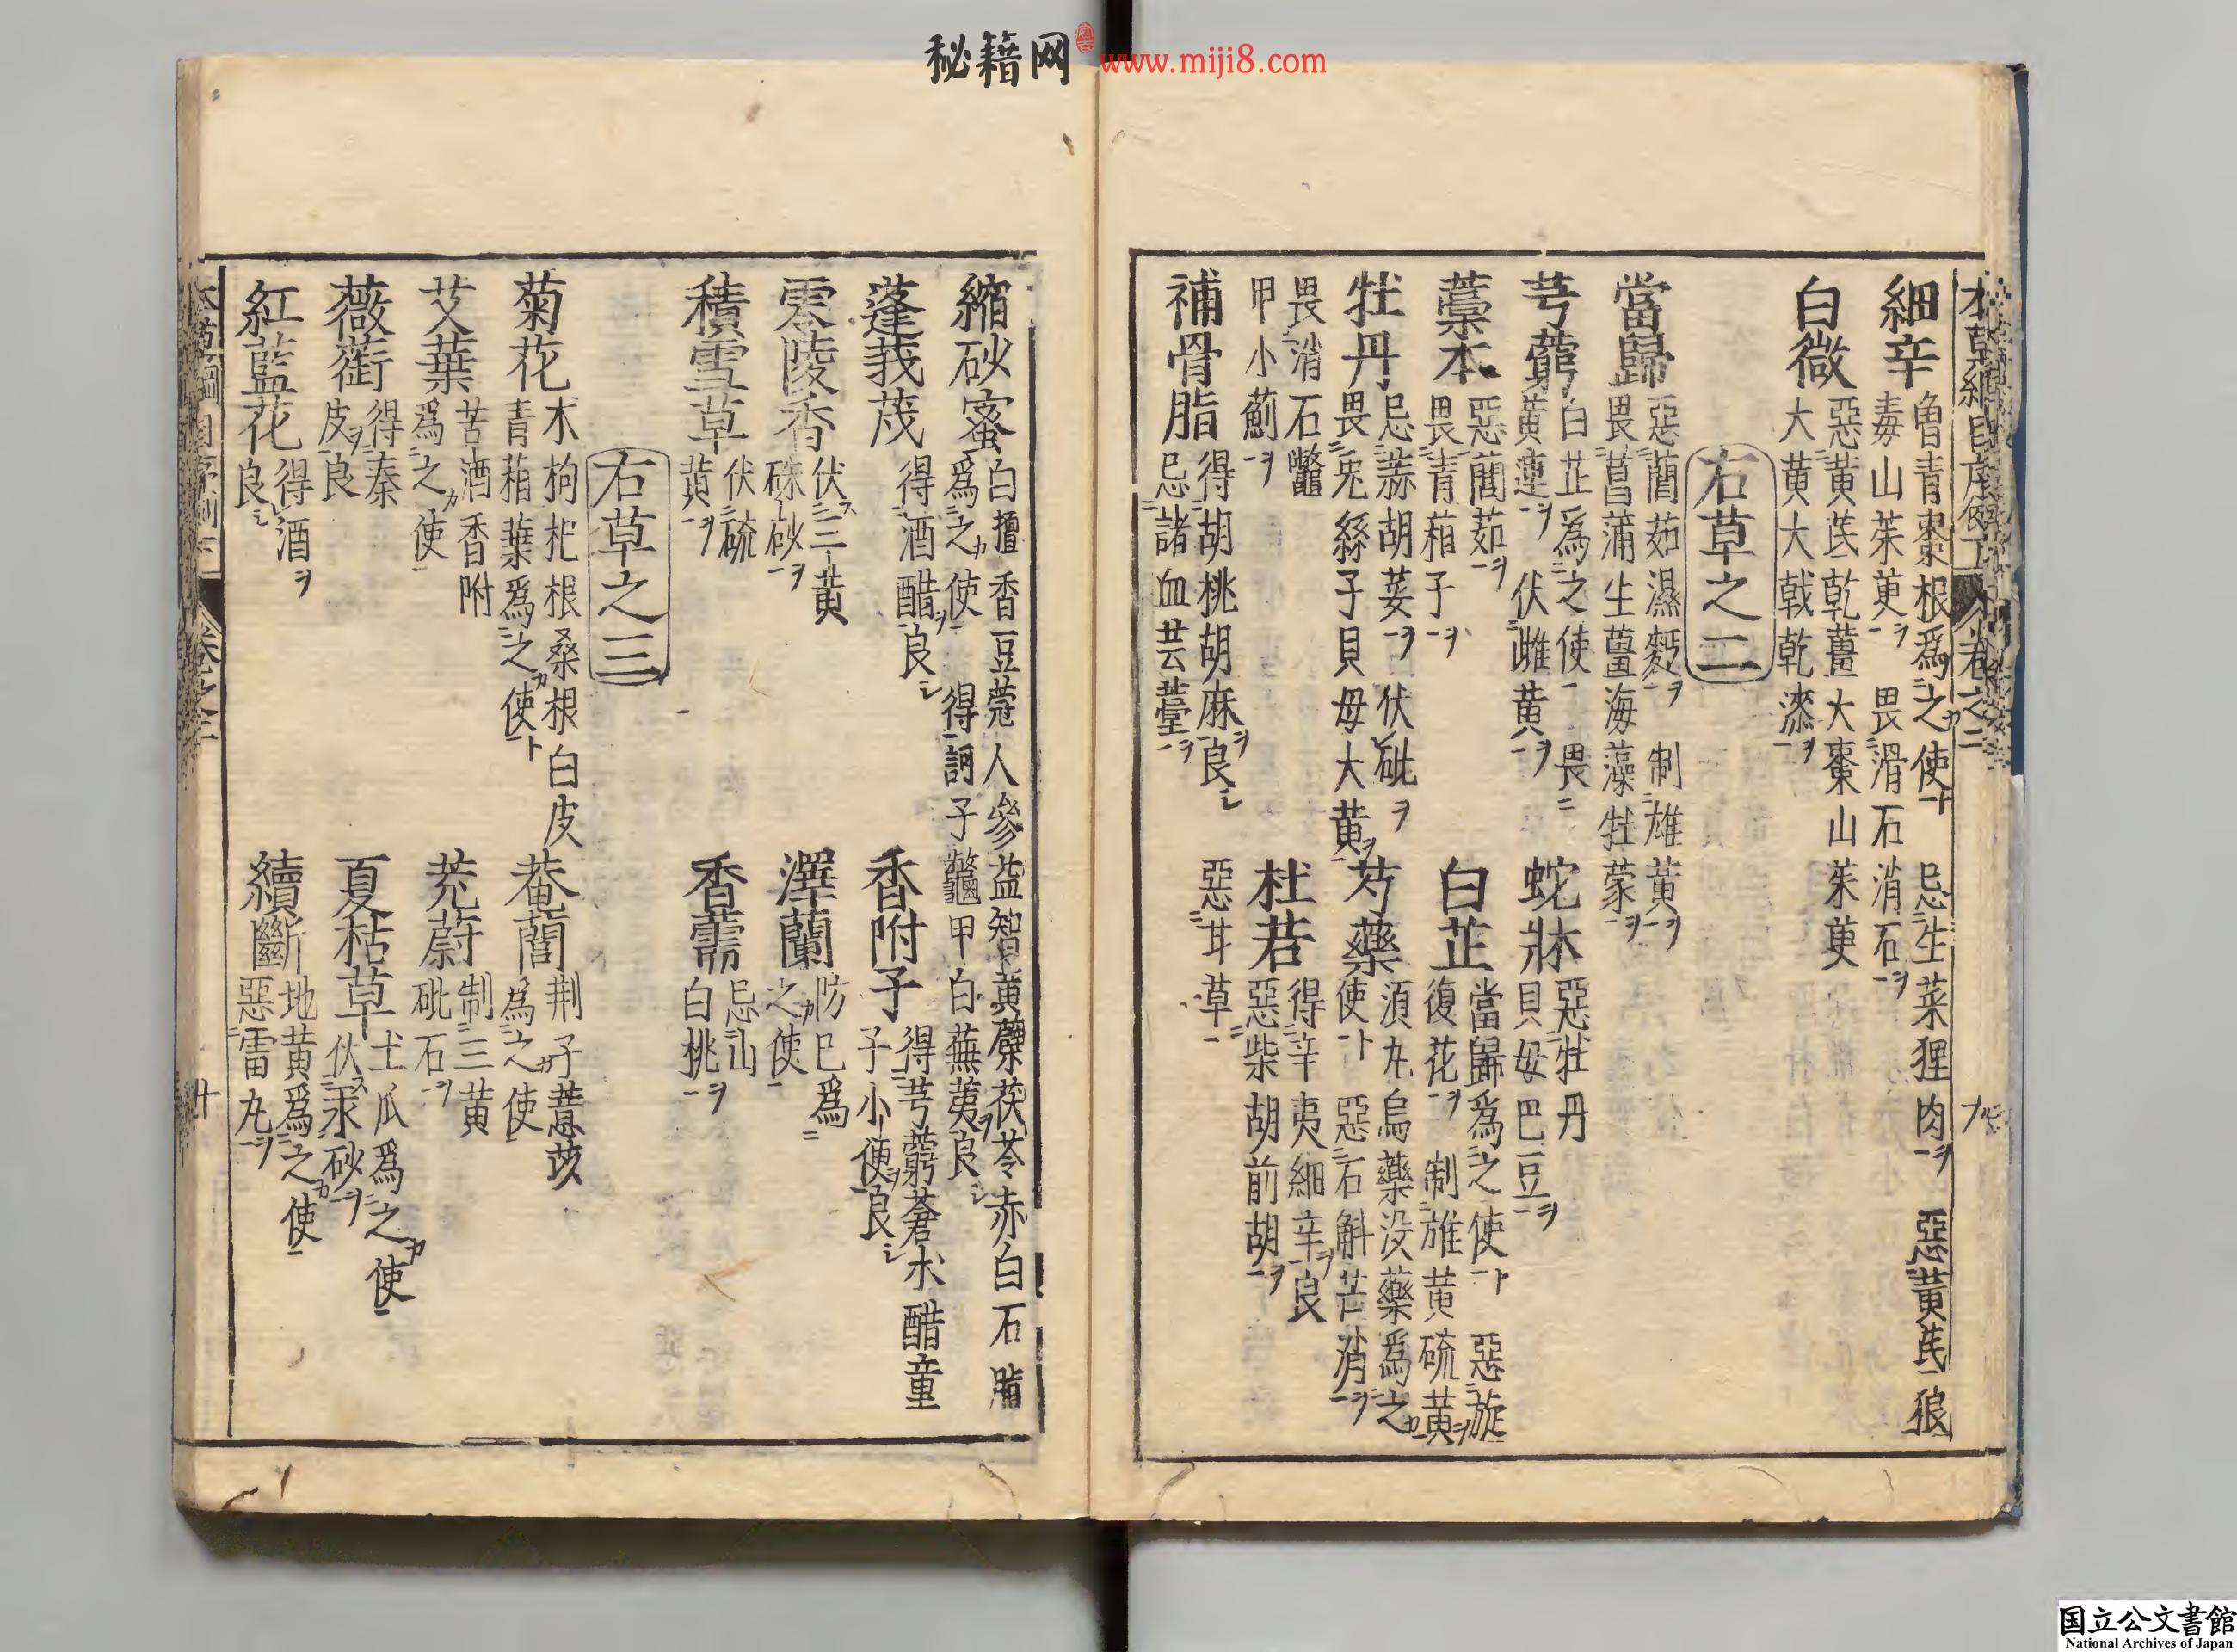 秘籍网 www.miji8.com
細辛 曾青棗根爲之使 忌生菜狸肉 惡黃芪狼
毒山茱萸 畏滑石消石
白微 惡黃芪乾薑大棗山茱萸
大黃大戟乾漆
右草之二
當歸 惡䕡茹濕麪 制雄黃
畏菖蒲生薑海藻牡蒙
芎藭 白芷爲之使 畏
黃連 伏雌黃
蛇牀 惡牡丹
貝母巴豆
藁本 惡䕡茹
畏青葙子
白芷 當歸爲之使 惡旋
復花 制雄黃硫黃
牡丹 忌蒜胡荽 伏砒
畏兎絲子貝母大黃
芍藥 須丸烏藥沒藥爲之
使 惡石斛芒消
畏消石鼈
甲小薊
杜若 得辛夷細辛良
惡柴胡前胡
補骨脂 得胡桃胡麻良 惡甘草
忌諸血芸薹
縮砂蜜 白擅香豆蔻人參益智黃蘗茯苓赤白石脂
爲之使 得訶子鼈甲白蕪荑良
蓬莪茂 得酒醋良
香附子 得芎藭蒼朮醋童
子小便良
零陵香 伏三黃
硃砂
澤蘭 防已爲
之使
積雪草 伏硫
黃
香薷 忌山
白桃
右草之三
菊花 朮枸杞根桑根白皮
青葙葉爲之使
菴䕡 荆子薏苡
爲之使
艾葉 苦酒香附
爲之使
茺蔚 制三黃
砒石
薇銜 得秦
皮良
夏枯草 土瓜爲之使
伏汞砂
紅藍花 得酒
良
續斷 地黃爲之使
惡雷丸
卷之二
廿
国立公文書館
National Archives of Japan